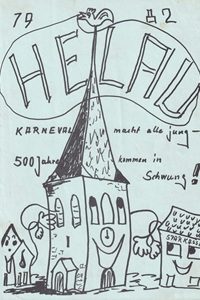 79 82
HELAU
KARNEVAL macht alle jung-
500 Jahre kommen in
Schwung!
SPARKASSE